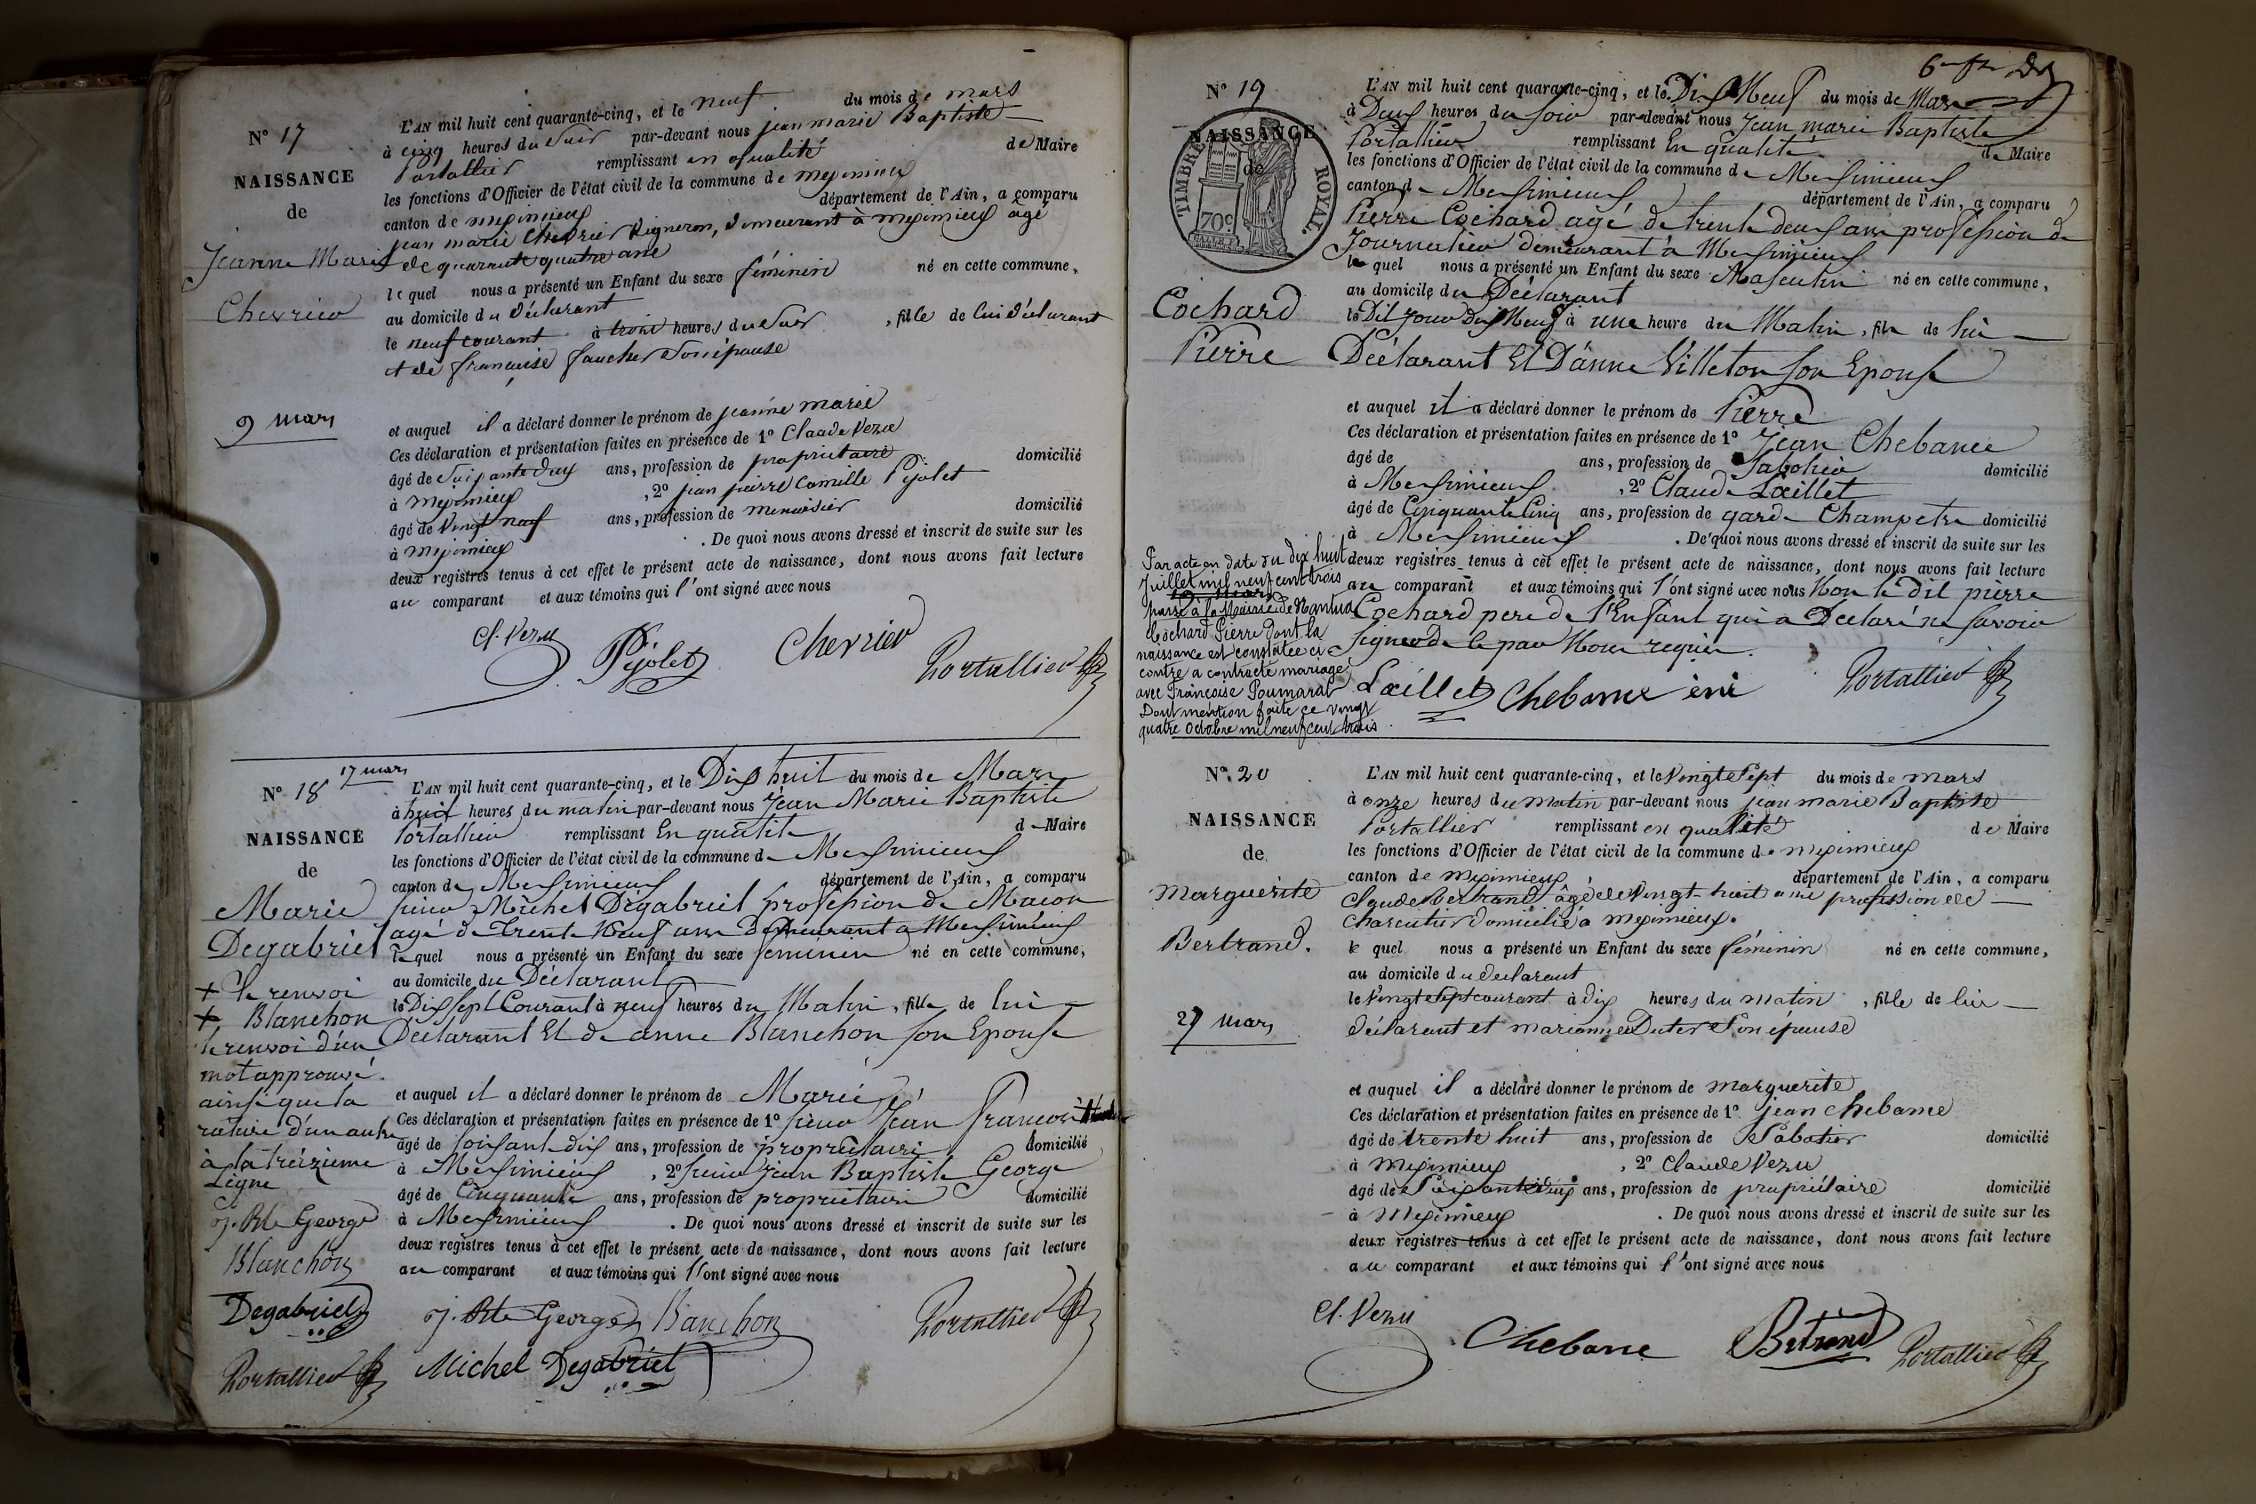 N° 17
NAISSANCE
de
Jeanne Marie
Chevrier
9 mars
L'AN mil huit cent quarante-cinq, et le neuf du mois de mars
à cinq heures du soir par-devant nous jean marie Baptiste
Portallier remplissant en qualité de Maire
les fonctions d'Officier de l'état civil de la commune de meximieux
canton de meximieux département de l'Ain, a comparu
jean marie Chevrier vigneron, demeurant à meximieux âgé
de quarante quatre ans
lequel nous a présenté un Enfant du sexe féminin né en cette commune,
au domicile du déclarant
le neuf courant à trois heures du soir, fille de lui déclarant
et de françoise faucher son épouse
et auquel il a déclaré donner le prénom de jeanne marie
Ces déclaration et présentation faites en présence de 1° Claude Vezu
âgé de soixante dix ans, profession de propriétaire domicilié
à meximieux, 2° jean pierre Camille Pijolet
âgé de vingt neuf ans, profession de menuisier domicilié
à meximieux. De quoi nous avons dressé et inscrit de suite sur les
deux registres tenus à cet effet le présent acte de naissance, dont nous avons fait lecture
au comparant et aux témoins qui l'ont signé avec nous
Cl. Vezu Pijolet Chevrier Portallier
N° 18 17 mars
NAISSANCE
de
Marie
Degabriel
+ le renvoi
+ Blanchon
le renvoi d'un
mot approuvé
ainsi que la
rature d'un autre
à la treizieme
Ligne
j. Bte George
Blanchon
Degabriel
Portallier
L'AN mil huit cent quarante-cinq, et le Dix huit du mois de Mars
à huit heures du matin par-devant nous Jean Marie Baptiste
Portallier remplissant En qualité de Maire
les fonctions d'Officier de l'état civil de la commune de Meximieux
canton de Meximieux département de l'Ain, a comparu
sieur Michel Dégabriel profession de Macon
agé de Trente Neuf ans Demeurant a Meximieux
lequel nous a présenté un Enfant du sexe feminin né en cette commune,
au domicile du Déclarant
le Dix sept Courant à neuf heures du Matin, fille de lui
Déclarant Et de anne Blanchon son Epouse
et auquel il a déclaré donner le prénom de Marie
Ces déclaration et présentation faites en présence de 1° sieur Jean François
âgé de soixante dix ans, profession de propriétaire domicilié
à Meximieux, 2° sieur jean Baptiste George
âgé de Cinquante ans, profession de propriétaire domicilié
à Meximieux. De quoi nous avons dressé et inscrit de suite sur les
deux registres tenus à cet effet le présent acte de naissance, dont nous avons fait lecture
au comparant et aux témoins qui l'ont signé avec nous
j. Bte George Blanchon Portallier
Michel Degabriel
N° 19
NAISSANCE
de
TIMBRE ROYAL
70c
Cochard
Pierre
L'AN mil huit cent quarante-cinq, et le Dix Neuf du mois de Mars
à Deux heures du soir par-devant nous Jean marie Baptiste
Portallier remplissant En qualité de Maire
les fonctions d'Officier de l'état civil de la commune de Meximieux
canton de Meximieux département de l'Ain, a comparu
Pierre Cochard agé de trente deux ans profession de
Journalier demeurant à Meximieux
lequel nous a présenté un Enfant du sexe Masculin né en cette commune,
au domicile du Déclarant
le Dit jour Dix Neuf à une heure du Matin, fils de lui
Déclarant Et D'anne Villeton son Epouse
et auquel il a déclaré donner le prénom de Pierre
Ces déclaration et présentation faites en présence de 1° Jean Chebance
âgé de ans, profession de Sabotier domicilié
à Meximieux, 2° Claude Lœillet
âgé de Cinquante Cinq ans, profession de garde Champetre domicilié
à Meximieux. De quoi nous avons dressé et inscrit de suite sur les
deux registres tenus à cet effet le présent acte de naissance, dont nous avons fait lecture
au comparant et aux témoins qui l'ont signé avec nous Non le dit pierre
Cochard pere de l'Enfant qui a Déclaré ne savoir
signer de ce par Nous requis.
Lœillet Chebance Portallier
Par acte en date du dix huit
Juillet mil neuf cent trois
passé à la Mairie de Nantua
Cochard Pierre dont la
naissance est constatée ci-
contre a contracté mariage
avec Françoise Poumarat
Dont mention faite ce vingt
quatre Octobre mil neuf cent trois
N° 20
NAISSANCE
de
Marguerite
Bertrand.
27 mars
L'AN mil huit cent quarante-cinq, et le vingt sept du mois de mars
à onze heures du matin par-devant nous jean marie Baptiste
Portallier remplissant en qualité de Maire
les fonctions d'Officier de l'état civil de la commune de meximieux
canton de meximieux département de l'Ain, a comparu
Claude Bertrand âgé de vingt-huit ans profession de
charcutier domicilié à meximieux.
lequel nous a présenté un Enfant du sexe féminin né en cette commune,
au domicile du déclarant
le vingt sept courant à dix heures du matin, fille de lui
déclarant et marianne Duter son épouse
et auquel il a déclaré donner le prénom de marguerite
Ces déclaration et présentation faites en présence de 1° jean chebance
âgé de trente huit ans, profession de Sabotier domicilié
à meximieux, 2° Claude Vezu
âgé de soixante dix ans, profession de propriétaire domicilié
à meximieux. De quoi nous avons dressé et inscrit de suite sur les
deux registres tenus à cet effet le présent acte de naissance, dont nous avons fait lecture
au comparant et aux témoins qui l'ont signé avec nous
Cl. Vezu Chebance Bertrand Portallier